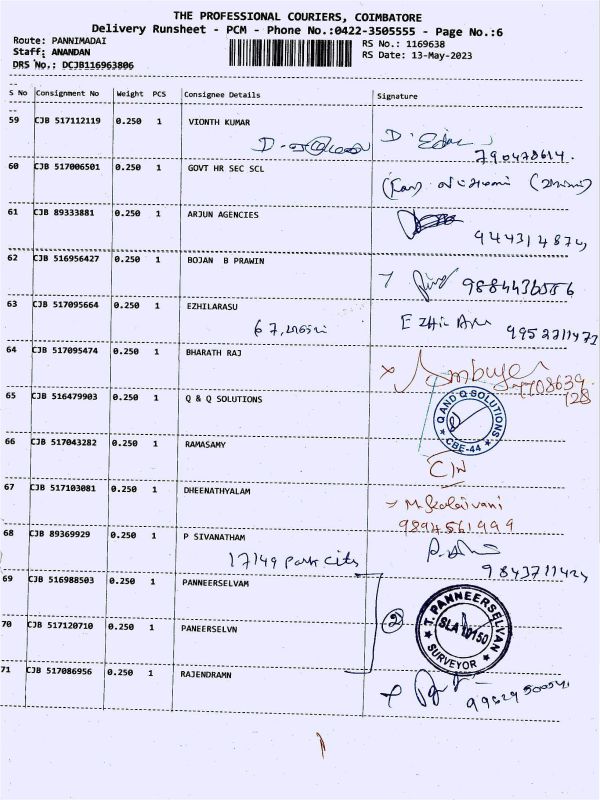 THE PROFESSIONAL COURIERS, COIMBATORE
Delivery Runsheet - PCM - Phone No.:0422-3505555 - Page No.:6
Route: PANNIMADAI
RS No.: 1169638
Staff: ANANDAN
RS Date: 13-May-2023
DRS No.: DCJB116963806
S No Consignment No Weight PCS Consignee Details Signature
59 CJB 517112119 0.250 1 VIONTH KUMAR
790478614.
60 CJB 517006501 0.250 1 GOVT HR SEC SCL
61 CJB 89333881 0.250 1 ARJUN AGENCIES
944314874
62 CJB 516956427 0.250 1 BOJAN B PRAWIN
63 CJB 517095664 0.250 1 EZHILARASU
9952711472
64 CJB 517095474 0.250 1 BHARATH RAJ
7708639
128
65 CJB 516479903 0.250 1 Q & Q SOLUTIONS
Q AND Q SOLUTIONS
CBE-44
66 CJB 517043282 0.250 1 RAMASAMY
67 CJB 517103081 0.250 1 DHEENATHYALAM
9894561999
68 CJB 89369929 0.250 1 P SIVANATHAM
17149 Park City
9843711424
69 CJB 516988503 0.250 1 PANNEERSELVAM
2
T. PANNEERSELVAN
SURVEYOR
70 CJB 517120710 0.250 1 PANEERSELVN
71 CJB 517086956 0.250 1 RAJENDRAMN